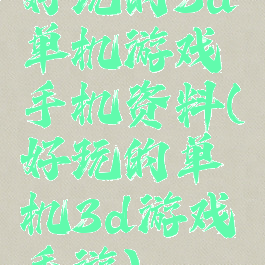 好玩的3d
单机游戏
手机资料(
好玩的单
机3d游戏
手游)